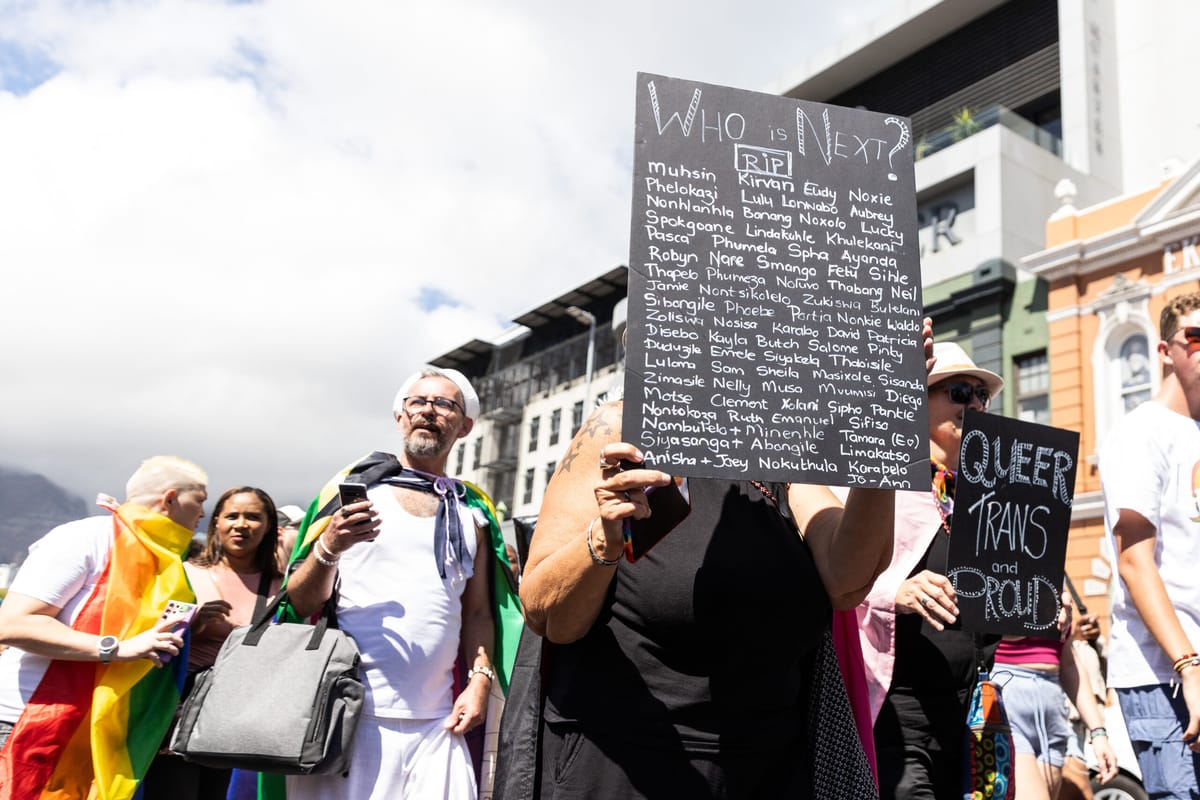 WHO is NEXT?
RIP
Muhsin Kirvan Eudy Noxie
Phelokazi Lulu Lonwabo Aubrey
Nonhlanhla Banang Noxolo Lucky
Spokgoane Lindakuhle Khulekani
Pasca Phumela Spha Ayanda
Robyn Nare Smango Fetu Sihle
Thapelo Phumeza Noluvo Thabang Neil
Jamie Nontsikelelo Zukiswa Bulelani
Sibangile Phoebe Portia Nonkie Waldo
Zoliswa Nosisa Karabo David Patricia
Disebo Kayla Butch Salome Pinky
Duduzile Emele Siyakela Thabisile
Luloma Sam Sheila Masixole Sisanda
Zimasile Nelly Musa Mvumisi Diego
Motse Clement Xolani Sipho Pankie
Nontokozo Ruth Emanuel Sifiso
Nombulelo + Minenhle Tamara (E♡)
Siyasanga + Abongile Limakatso
Anisha + Joey Nokuthula Karabelo
Jo-Ann
QUEER
TRANS
and
PROUD